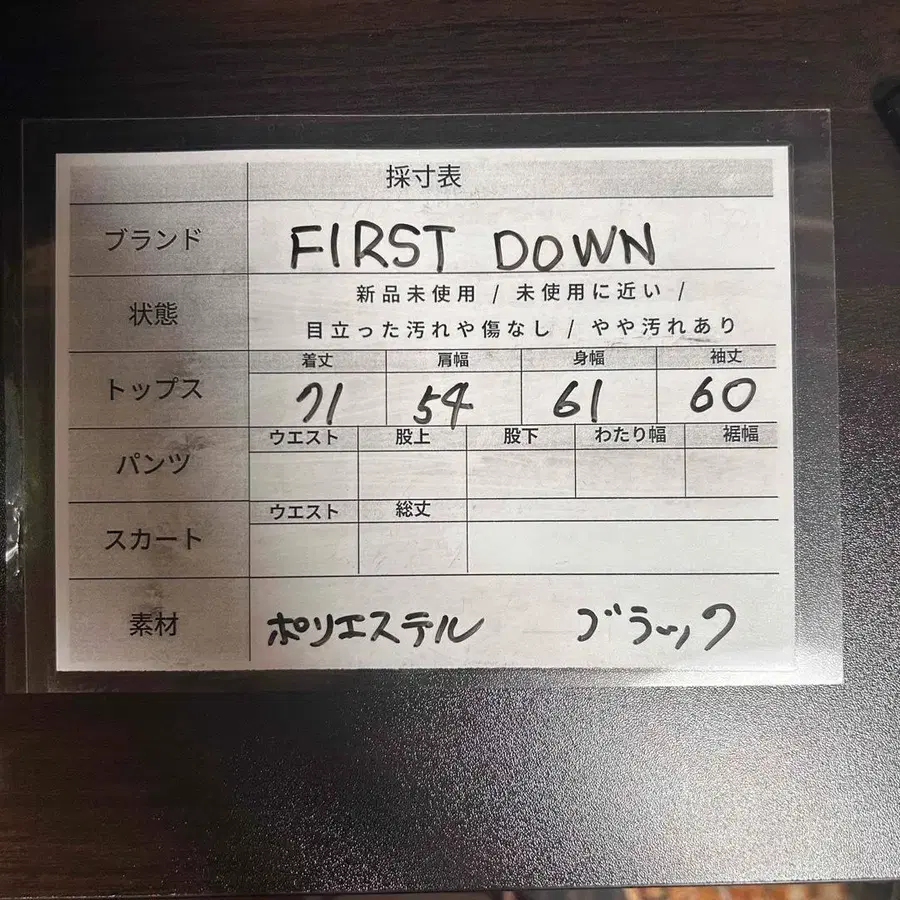 採寸表
ブランド FIRST DOWN
状態 新品未使用 / 未使用に近い /
目立った汚れや傷なし / やや汚れあり
着丈 肩幅 身幅 袖丈
トップス 71 54 61 60
ウエスト 股上 股下 わたり幅 裾幅
パンツ
ウエスト 総丈
スカート
素材 ポリエステル ブラック